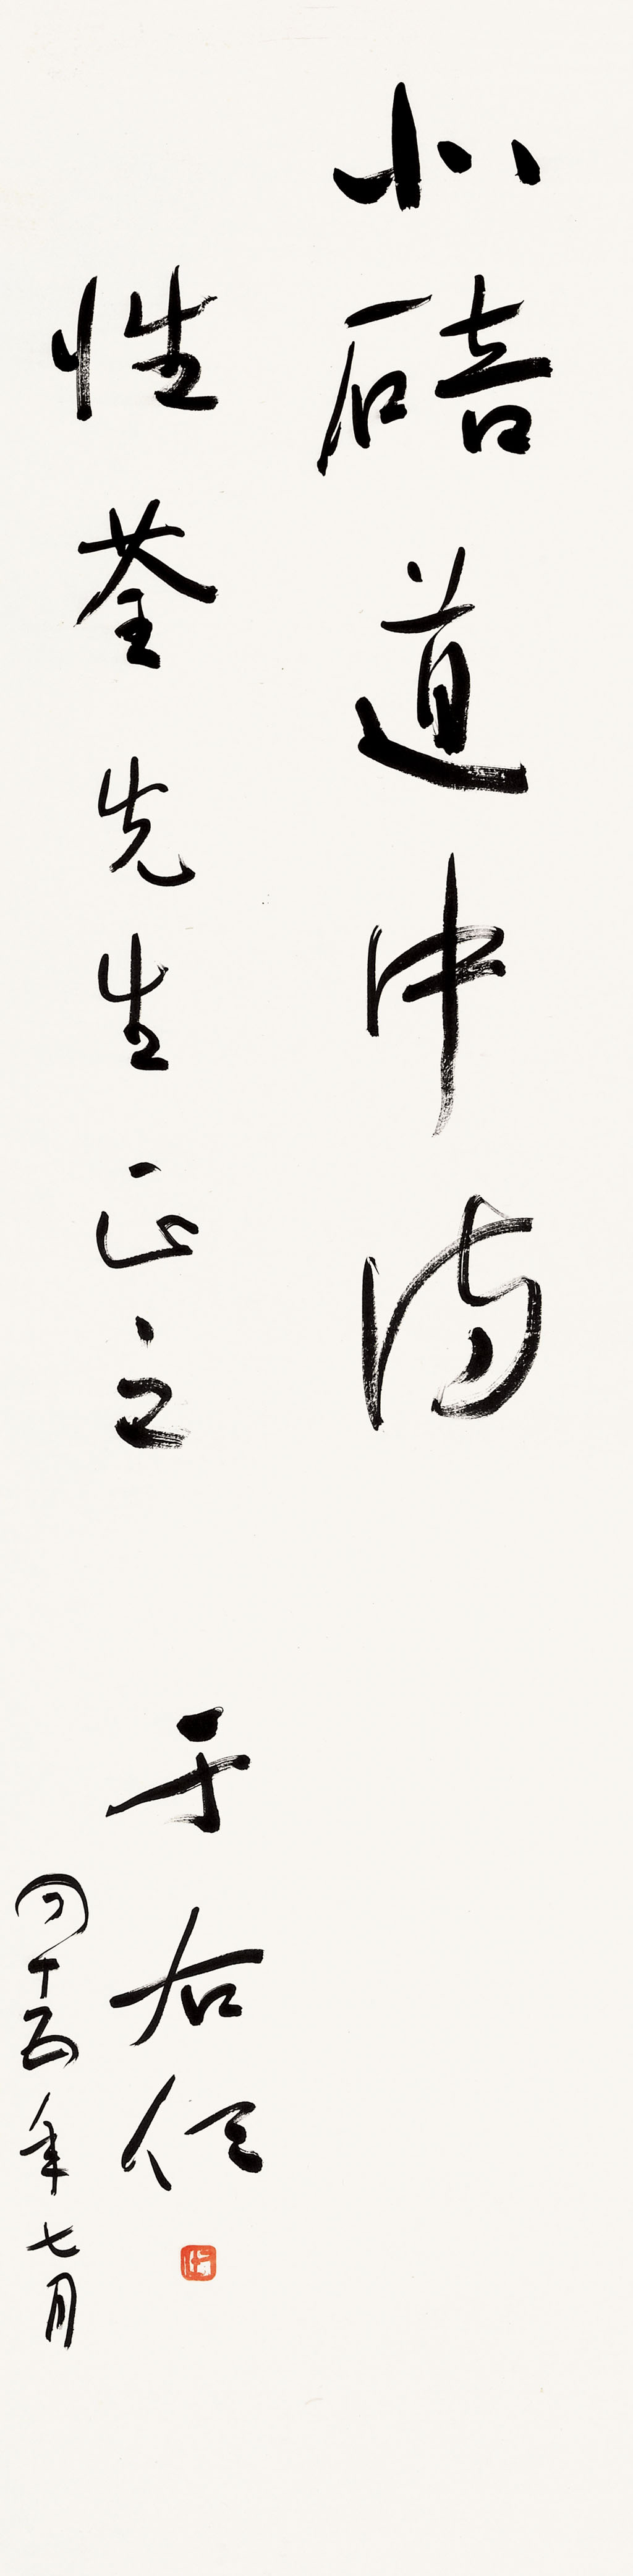 北碚道中詩
性荃先生正之
于右任
四十五年七月